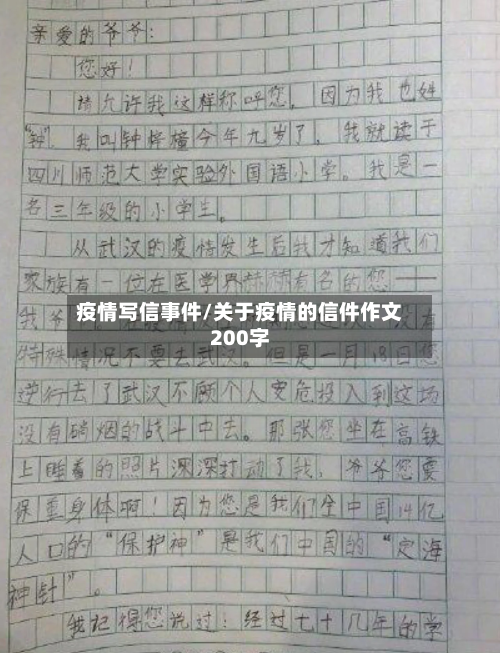 亲爱的爷爷：
您好！
请允许我这样称呼您，因为我也姓
“钟”，我叫钟梓橦今年九岁了，我就读于
四川师范大学实验外国语小学。我是一
名三年级的小学生。
从武汉的疫情发生后我才知道我们
家族有一位在医学界赫赫有名的您——
疫情写信事件/关于疫情的信件作文
200字
我爷
有
特殊情况不要去武汉。但是一月18日您
逆行去了武汉不顾个人安危投入到这场
没有硝烟的战斗中去。那张您坐在高铁
上睡着的照片深深打动了我，爷爷您要
保重身体啊！因为您是我们全中国14亿
人口的“保护神”是我们中国的“定海
神针”。
我记得您说过：经过七十几年的学